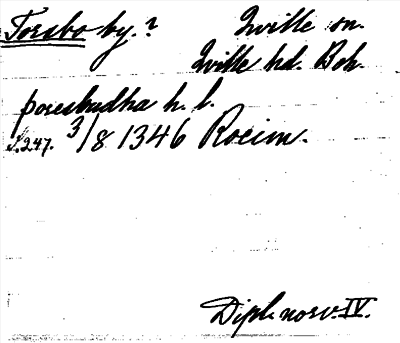 Torsbo by.? Qville sn.
Qville hd. Boh.
þoresbudha h. l.
s.247. 3/8 1346 Roeim.
Dipl. norv. IV.